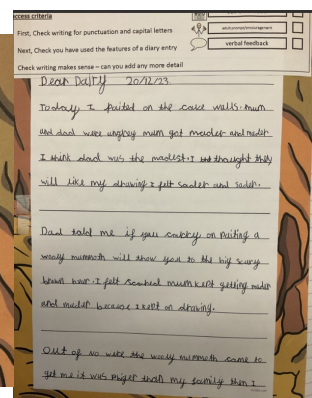 ccess criteria
First, Check writing for punctuation and capital letters
Next, Check you have used the features of a diary entry
Check writing makes sense – can you add any more detail
adult prompt/encouragement
verbal feedback
Dear Dairy 20/12/23
Today I paited on the cave walls. mum
and dad were ungrey mum got mader and mader
I think dad was the madest. I thought they
will like my drawing I felt sader and sader.
Dad told me if you on paiting a
wooly mummoth will show you to the big scary
brown bear. I felt scared mum kept getting mader
and mader because I kept on drawing.
Out of no were the wooly mummoth came to
get me it was biger than my family then I